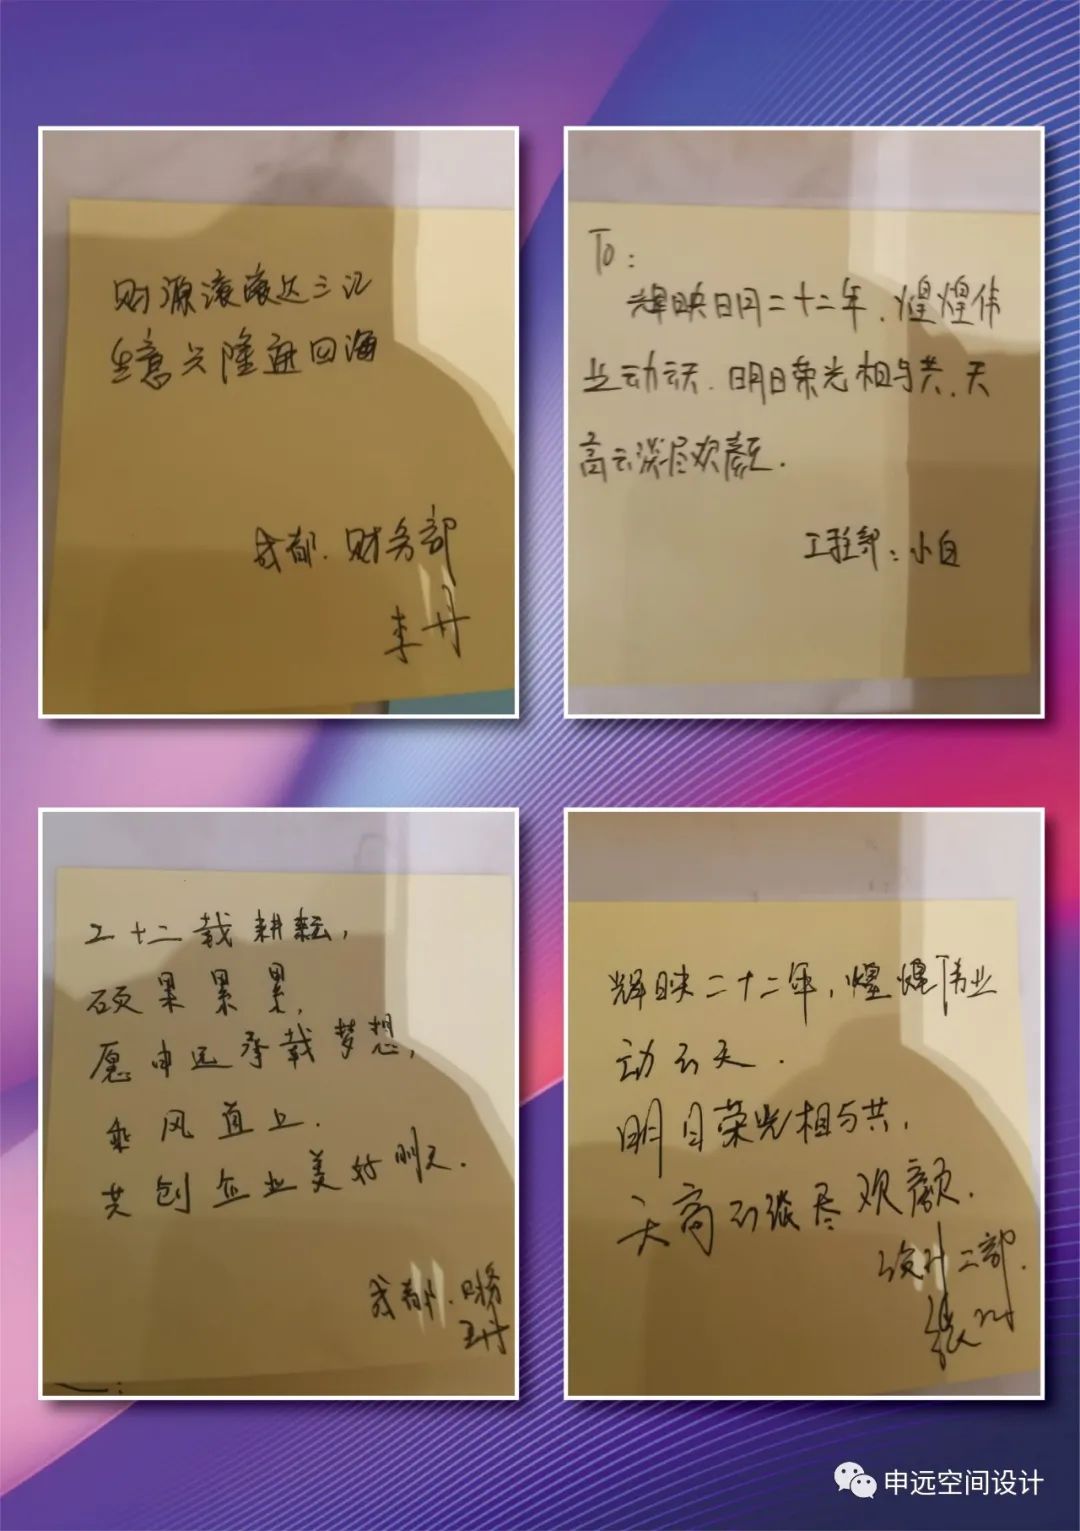 财源滚滚达三江
生意兴隆通四海
成都.财务部
李丹
To:
辉映日月二十二年.煌煌伟
业动云天.明日荣光相与共.天
高云淡尽欢颜.
工程部:小白
二十二载耕耘,
硕果累累,
愿申远承载梦想,
乘风直上.
共创企业美好明天.
成都.财务
王丹
辉映二十二年,煌煌伟业
动云天.
明日荣光相与共,
天高云淡尽欢颜.
设计二部.
张
申远空间设计